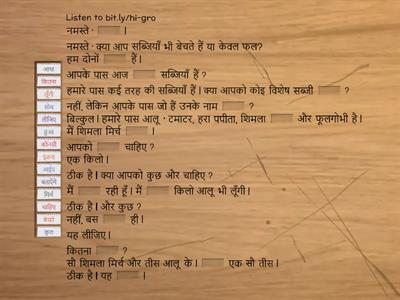 Listen to bit.ly/hi-gro
नमस्ते ।
नमस्ते · क्या आप सब्जियाँ भी बेचते हैं या केवल फल?
हम दोनों हैं ।
आपके पास आज सब्जियाँ हैं ?
हमारे पास कई तरह की सब्जियाँ हैं । क्या आपको कोइ विशेष सब्जी ?
नहीं, लेकिन आपके पास जो हैं उनके नाम ?
बिल्कुल । हमारे पास आलू · टमाटर, हरा पपीता, शिमला और फूलगोभी है ।
मैं शिमला मिर्च ।
आपको चाहिए ?
एक किलो ।
ठीक है । क्या आपको कुछ और चाहिए ?
मैं रही हूँ । मैं किलो आलू भी लूँगी ।
ठीक है । और कुछ ?
नहीं, बस ही ।
यह लीजिए ।
कितना ?
सौ शिमला मिर्च और तीस आलू के । एक सौ तीस ।
ठीक है । यह ।
आधा
कितना
लूँगी
सोच
लीजिए
हुआ
कौनसी
इतना
आईए
बताएँगे
मिर्च
चाहिए
बेचते
कुल